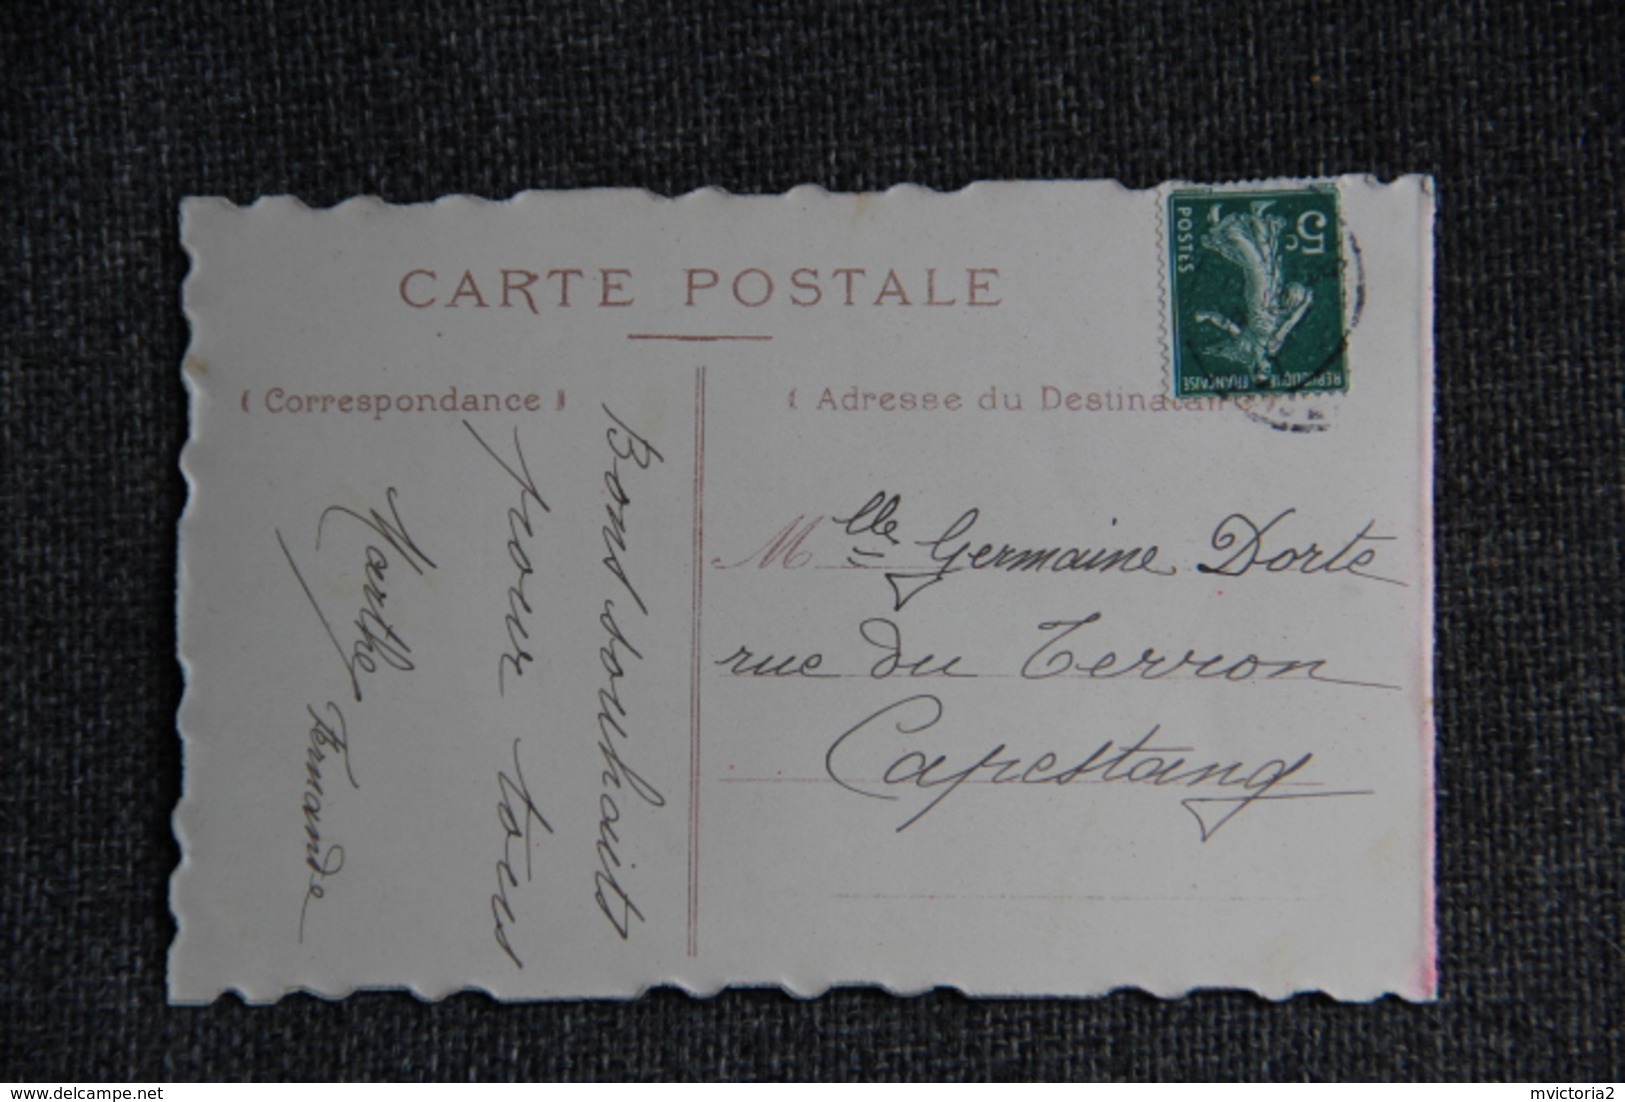 CARTE POSTALE
( Correspondance )
Bons souhaits
pour tous
Marthe
Fernande
( Adresse du Destinataire )
Mlle Germaine Dorte
rue du Terron
Capestang
5c
POSTES
REPUBLIQUE FRANÇAISE
www.delcampe.net
mvictoria2